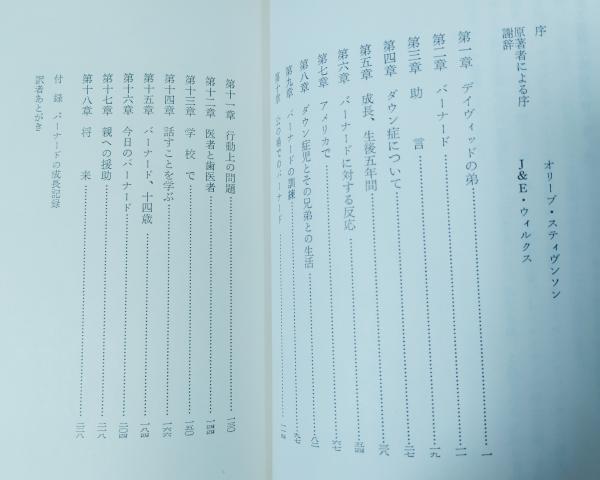 序 オリーブ・スティヴンソン
原著者による序 J&E・ウィルクス
謝辞
第一章 デイヴィッドの弟 一
第二章 バーナード 一一
第三章 助言 一九
第四章 ダウン症について 二七
第五章 成長、生後五年間 三八
第六章 バーナードに対する反応 五四
第七章 アメリカで 六七
第八章 ダウン症児とその兄弟との生活 八二
第九章 バーナードの訓練 九七
第十章 公の場でのバーナード
第十一章 行動上の問題 一三〇
第十二章 医者と歯医者 一四四
第十三章 学校で 一五〇
第十四章 話すことを学ぶ 一六六
第十五章 バーナード、十四歳 一八四
第十六章 今日のバーナード 二〇四
第十七章 親への援助 二一八
第十八章 将来 二二八
付録 バーナードの成長記録
訳者あとがき